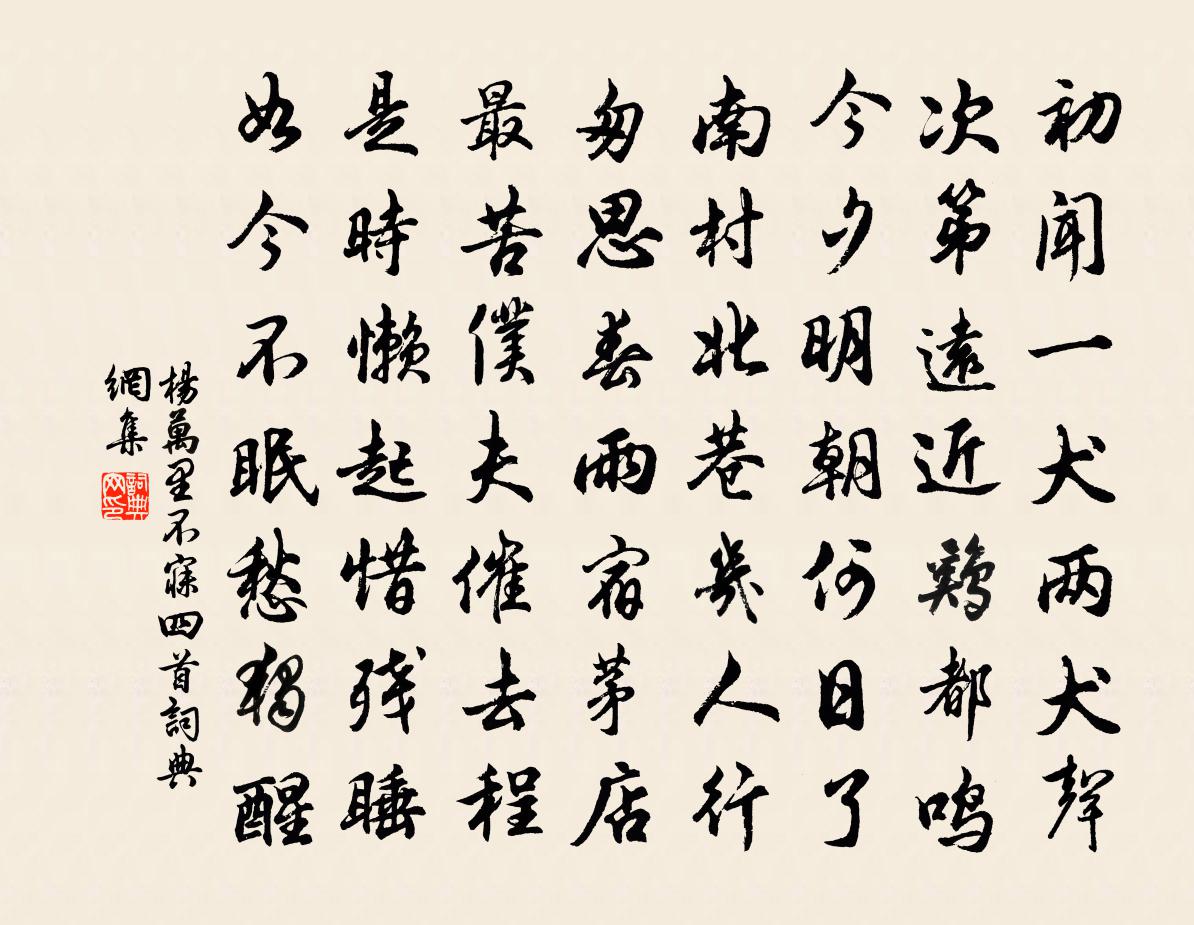 初闻一犬两犬聲
次第遠近鷄都鸣
今夕明朝何日了
南村北巷幾人行
匆思春雨宿茅店
最苦僕夫催去程
是時懒起惜残睡
如今不眠愁独醒
楊萬里不寐四首詞典
網集
詞典网印